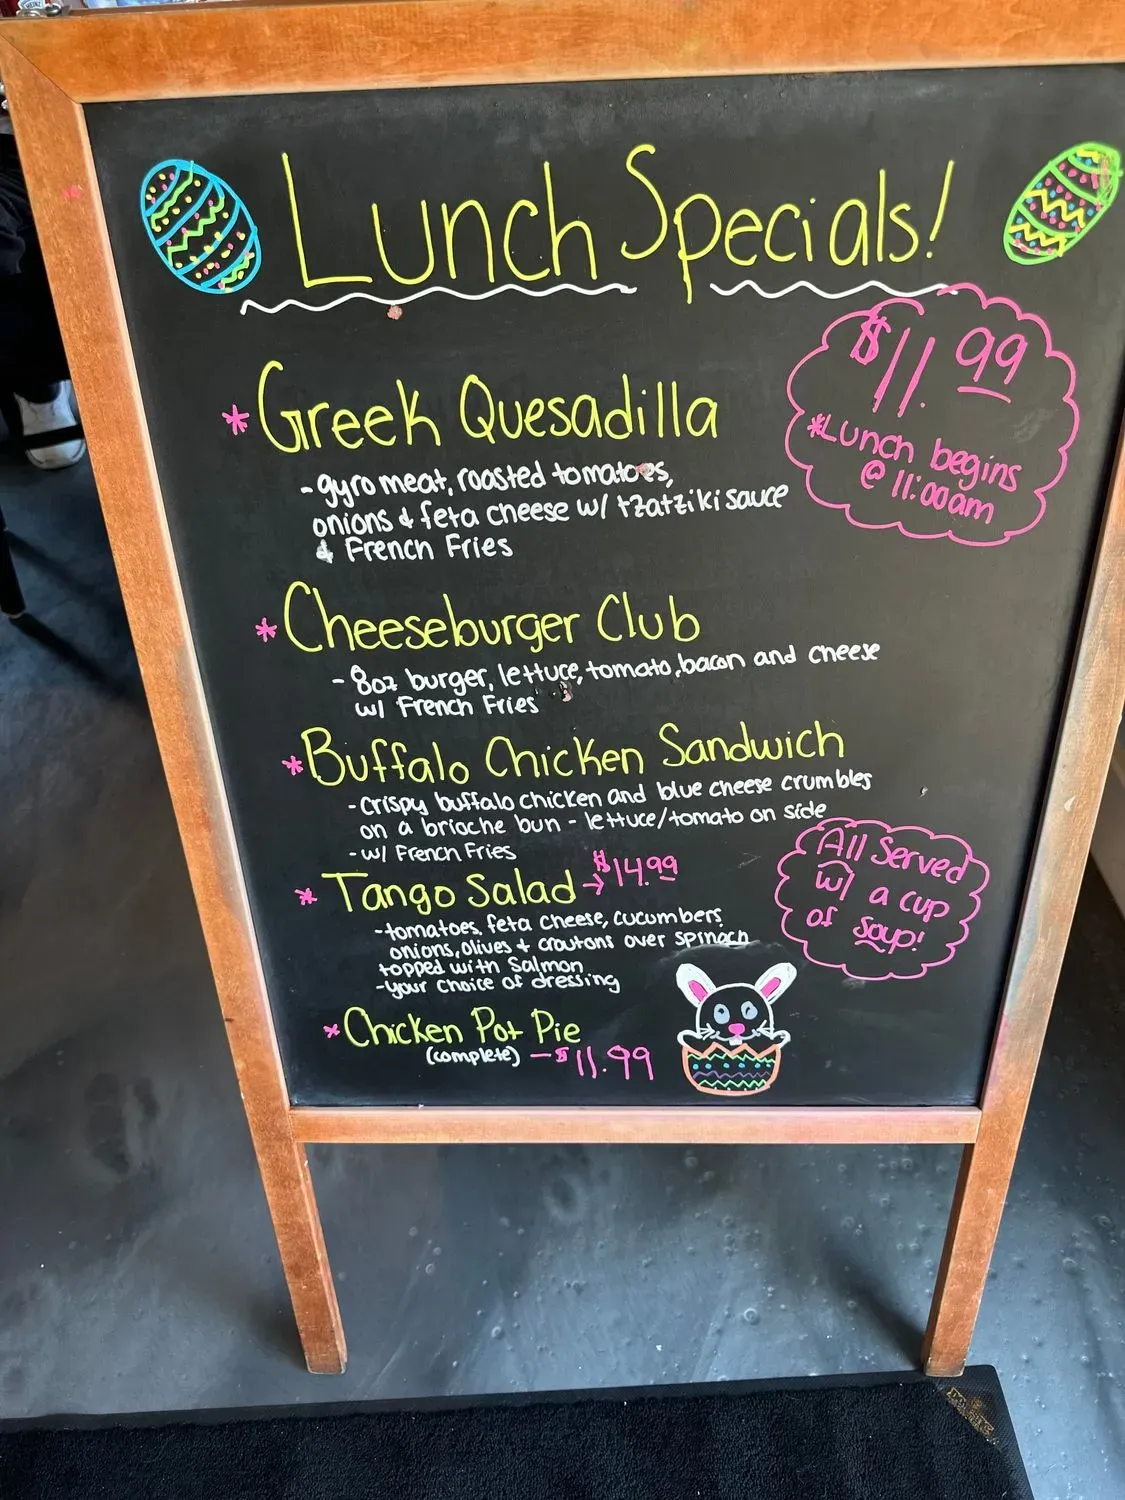 Lunch Specials!
$11.99
*Lunch begins
@ 11:00am
* Greek Quesadilla
- gyro meat, roasted tomatoes,
onions & feta cheese w/ tzatziki sauce
& French Fries
* Cheeseburger Club
- 8oz burger, lettuce, tomato, bacon and cheese
w/ French Fries
* Buffalo Chicken Sandwich
- crispy buffalo chicken and blue cheese crumbles
on a brioche bun - lettuce/tomato on side
- w/ French Fries
* Tango Salad → $14.99
- tomatoes, feta cheese, cucumbers,
onions, olives + croutons over spinach
topped with Salmon
- your choice of dressing
All Served
w/ a cup
of soup!
* Chicken Pot Pie
(complete) - $11.99